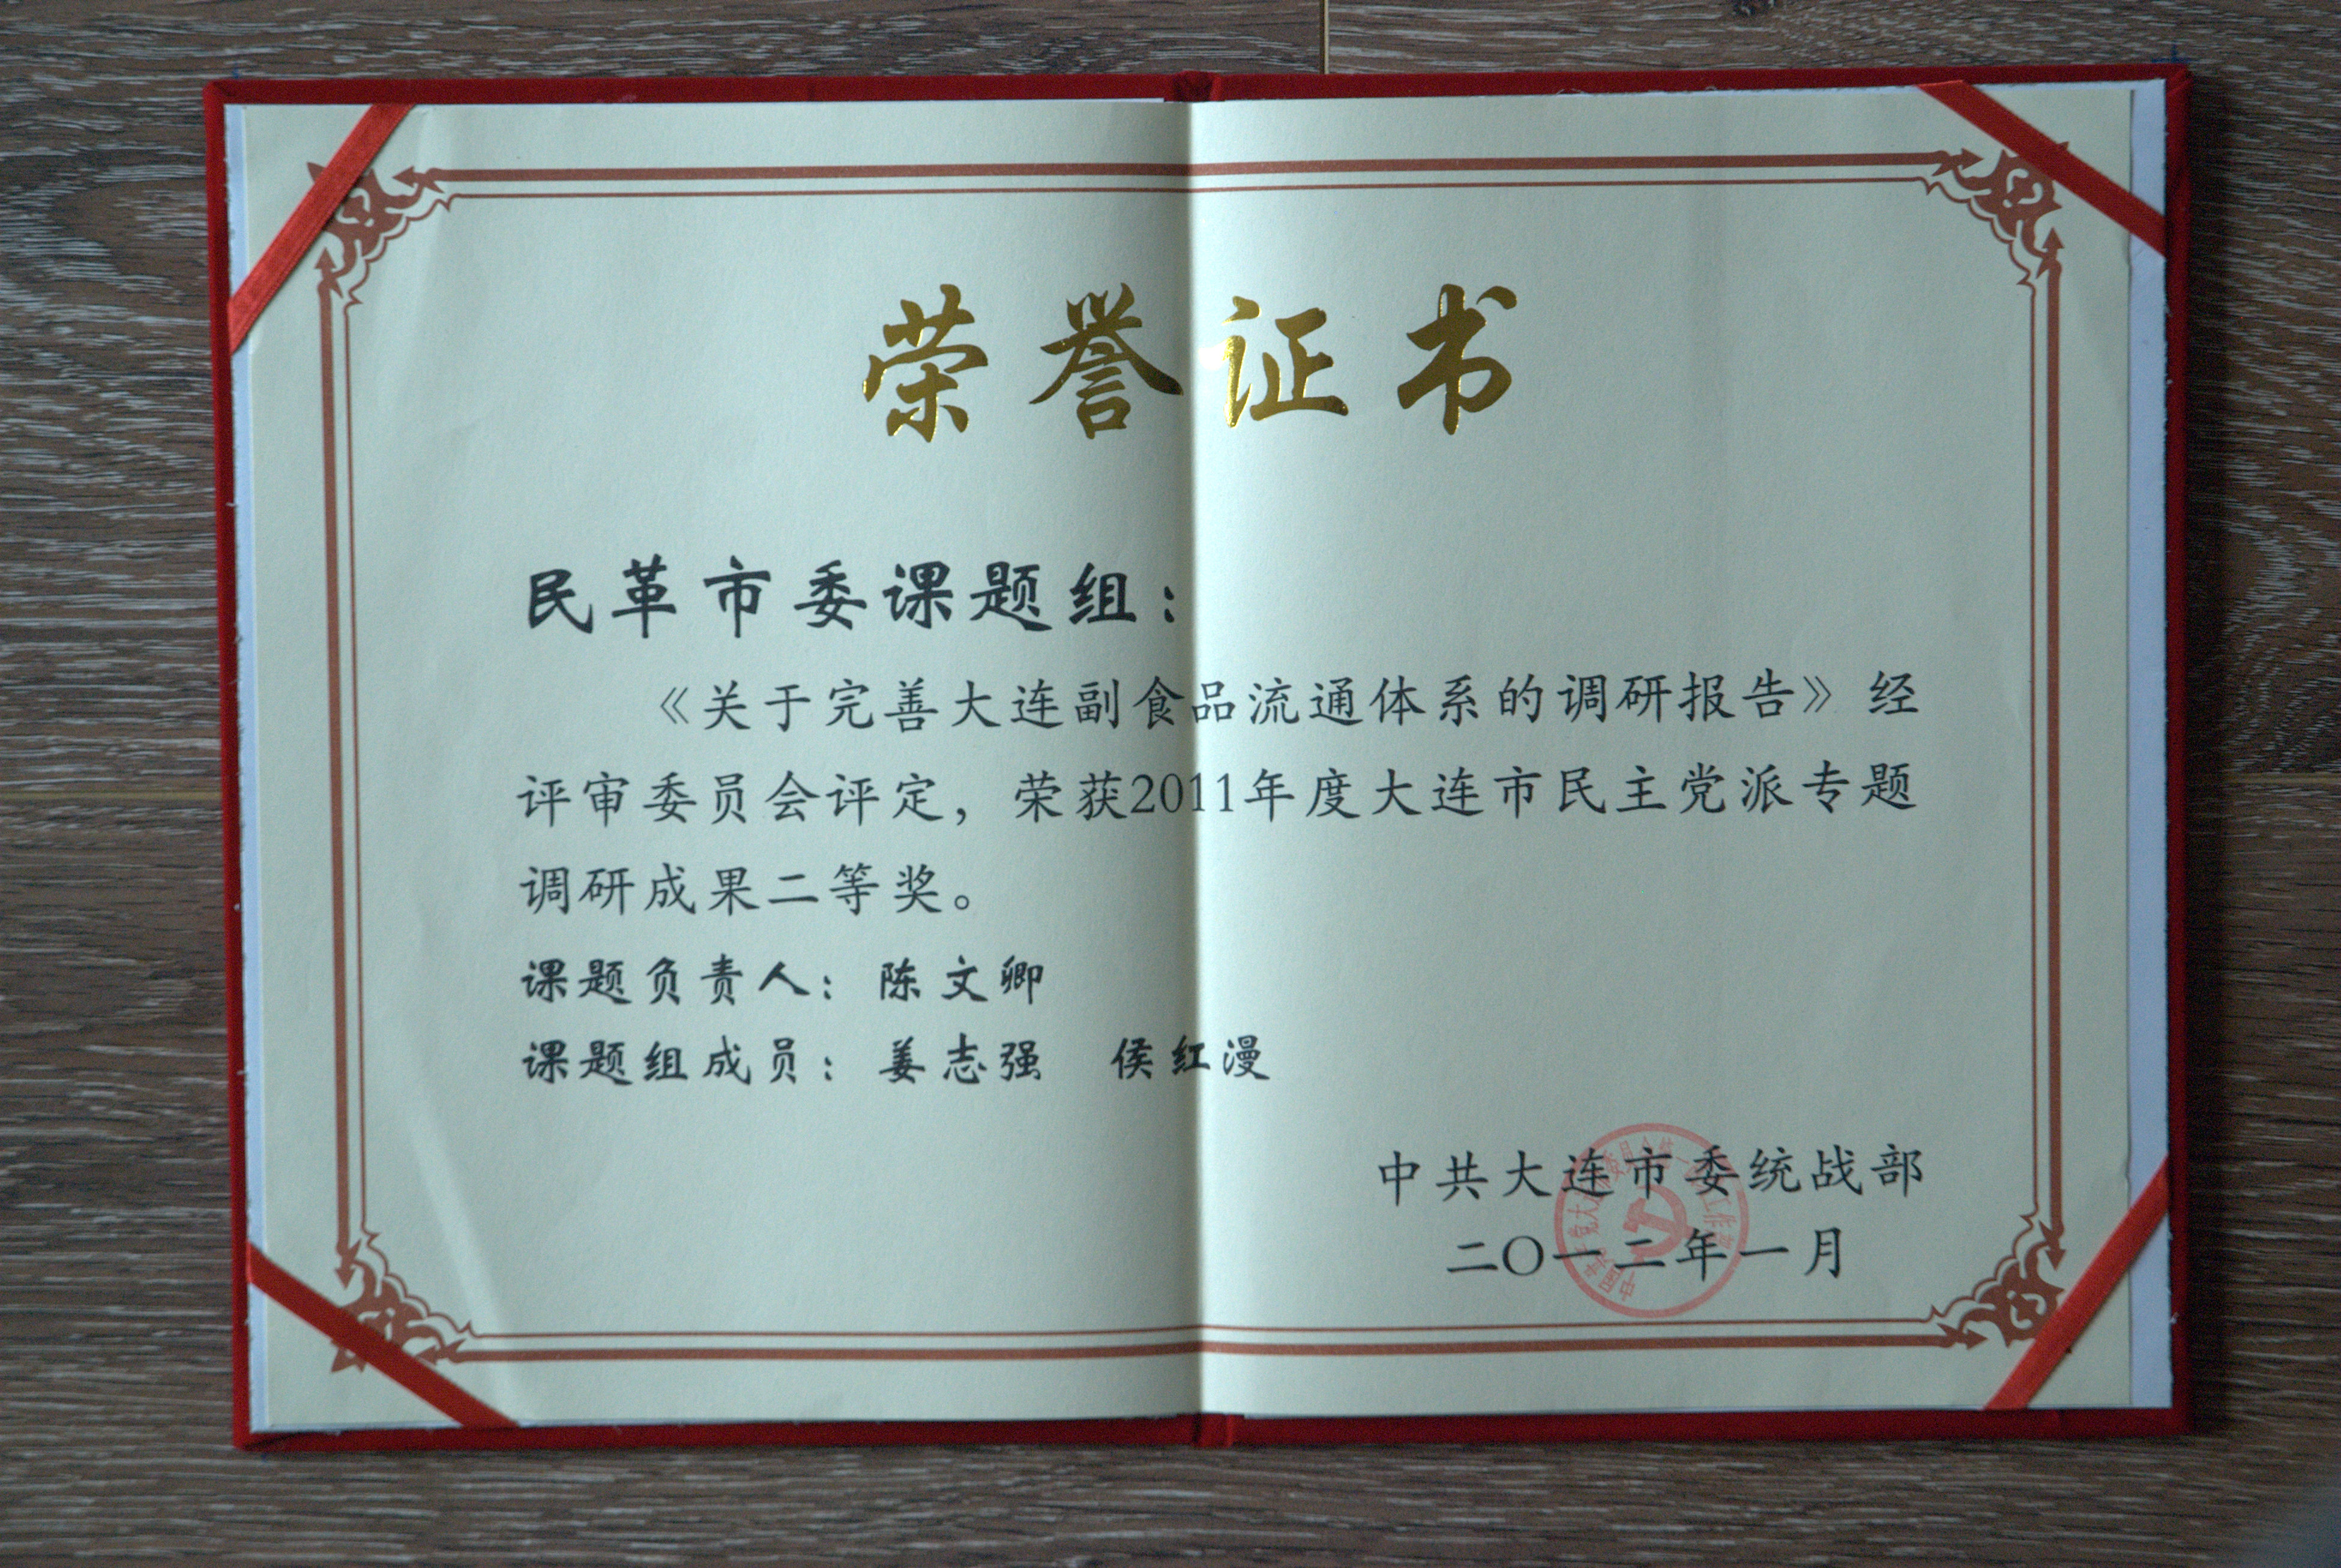 荣誉证书
民革市委课题组：
《关于完善大连副食品流通体系的调研报告》经
评审委员会评定，荣获2011年度大连市民主党派专题
调研成果二等奖。
课题负责人：陈文卿
课题组成员：姜志强　侯红漫
中共大连市委统战部
二〇一二年一月